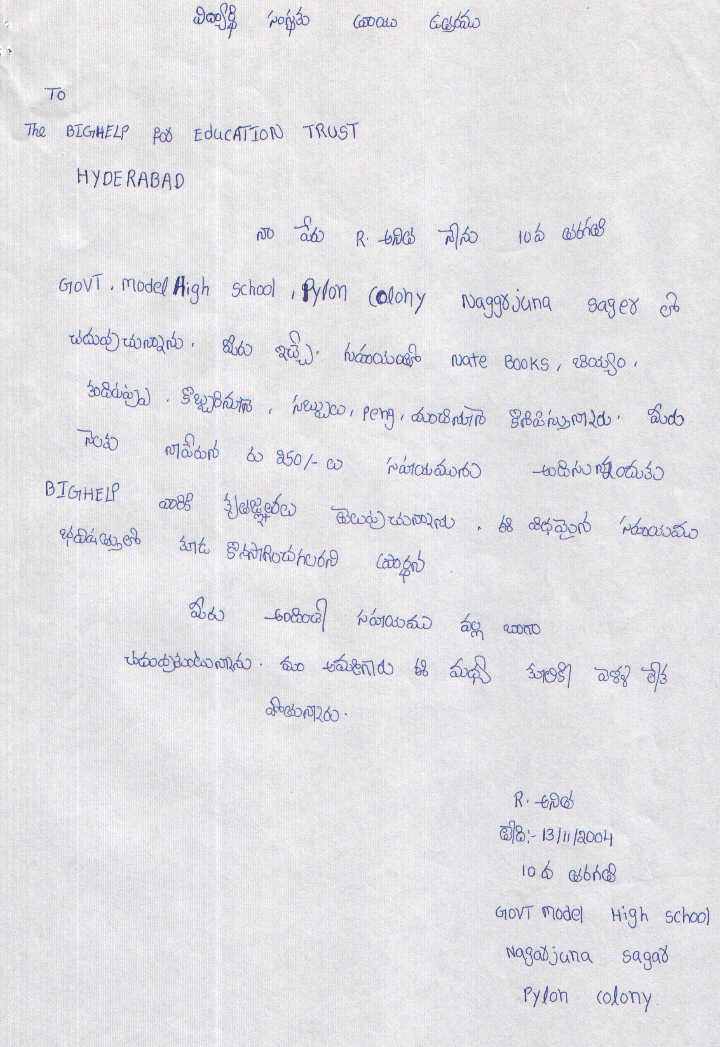 విద్యార్థి సంస్థకు వ్రాయు ఉత్తరము
TO
The BIGHELP for EDUCATION TRUST
HYDERABAD
నా పేరు R. అనిత నేను 10వ తరగతి
GOVT. Model High school, Pylon Colony Naggarjuna sager లో
చదువుచున్నాను. మీరు ఇచ్చే. సహాయంతో Nate BOOKS, బియ్యం,
కందిపప్పు, కొబ్బరినూనె, సబ్బులు, Pens, మంచినూనె కొనిపిస్తున్నారు. మీరు
నెలకు నాపేరున రు 250/- లు సహాయమును అందిస్తున్నందుకు
BIGHELP వారికి కృతజ్ఞతలు తెలుపుచున్నాను. ఈ విధమైన సహాయము
భవిష్యత్తులో కూడ కొనసాగించగలరని ప్రార్థన
మీరు అందించే సహాయము వల్ల బాగా
చదువుకుంటున్నాను. మా అమ్మగారు ఈ మధ్య కూలికి వెళ్ళ లేక
పోతున్నారు.
R. అనిత
తేది:- 13/11/2004
10 వ తరగతి
GOVT Model High school
Nagarjuna sagar
Pylon colony